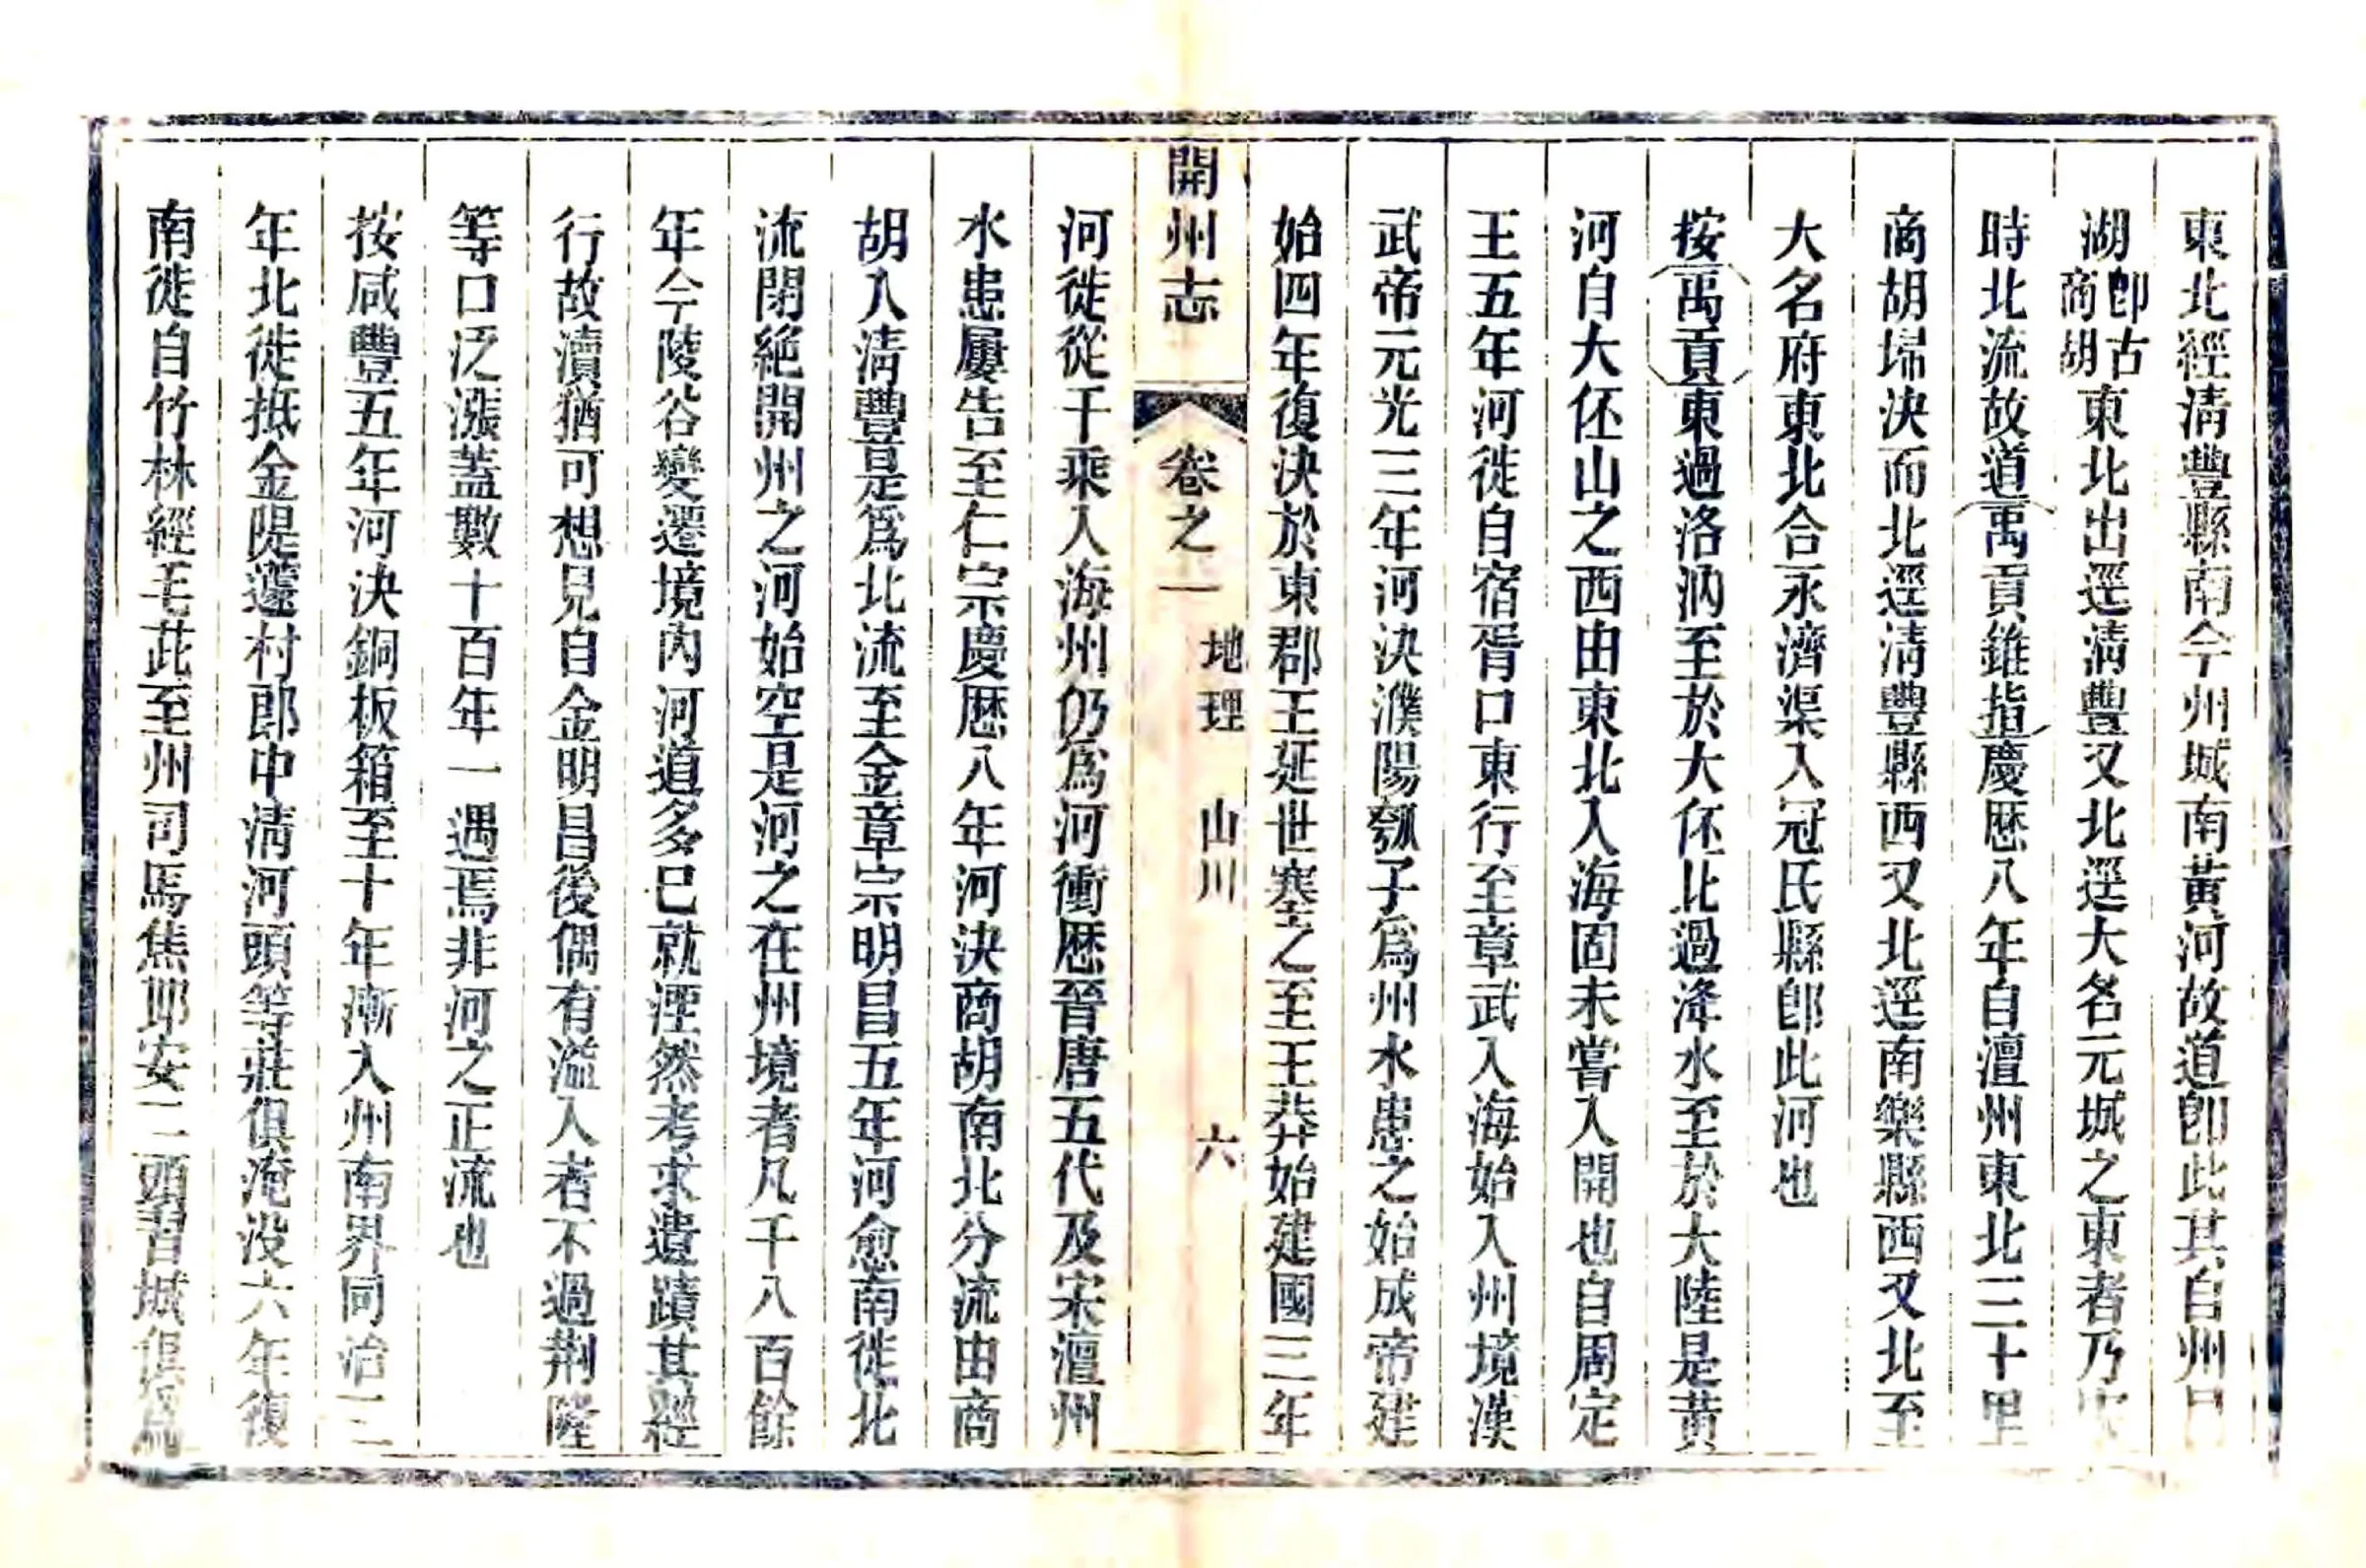 東北經清豐縣南今州城南黃河故道卽此其自州
湖卽古商胡東北出逕清豐又北逕大名元城之東者乃
時北流故道禹貢錐指慶歷八年自澶州東北三十里
商胡埽決而北逕清豐縣西又北逕南樂縣西又北至
大名府東北合永濟渠入冠氏縣卽此河也
按禹貢東過洛汭至於大伾北過洚水至於大陸是黃
河自大伾山之西由東北入海固未嘗入開也自周定
王五年河徙自宿胥口東行至章武入海始入州境漢
武帝元光三年河決濮陽瓠子爲州水患之始成帝建
始四年復決於東郡王延世塞之至王莽始建國三年
開州志 卷之一 地理 山川 六
河徙從千乘入海州仍爲河衝歷晉唐五代及宋澶州
水患屢告至仁宗慶歷八年河決商胡南北分流由商
胡入清豐是爲北流至金章宗明昌五年河愈南徙北
流閉絕開州之河始空是河之在州境者凡千八百餘
年今陵谷變遷境內河道多已就湮然考求遺蹟其經
行故瀆猶可想見自金明昌後偶有溢入者不過荆隆
等口泛漲蓋數十百年一遇焉非河之正流也
按咸豐五年河決銅板箱至十年漸入州南界同治二
年北徙抵金隄蘧村郎中清河頭等莊俱淹没六年復
南徙自竹林經毛茈至州司馬焦邨安二頭習城俱爲